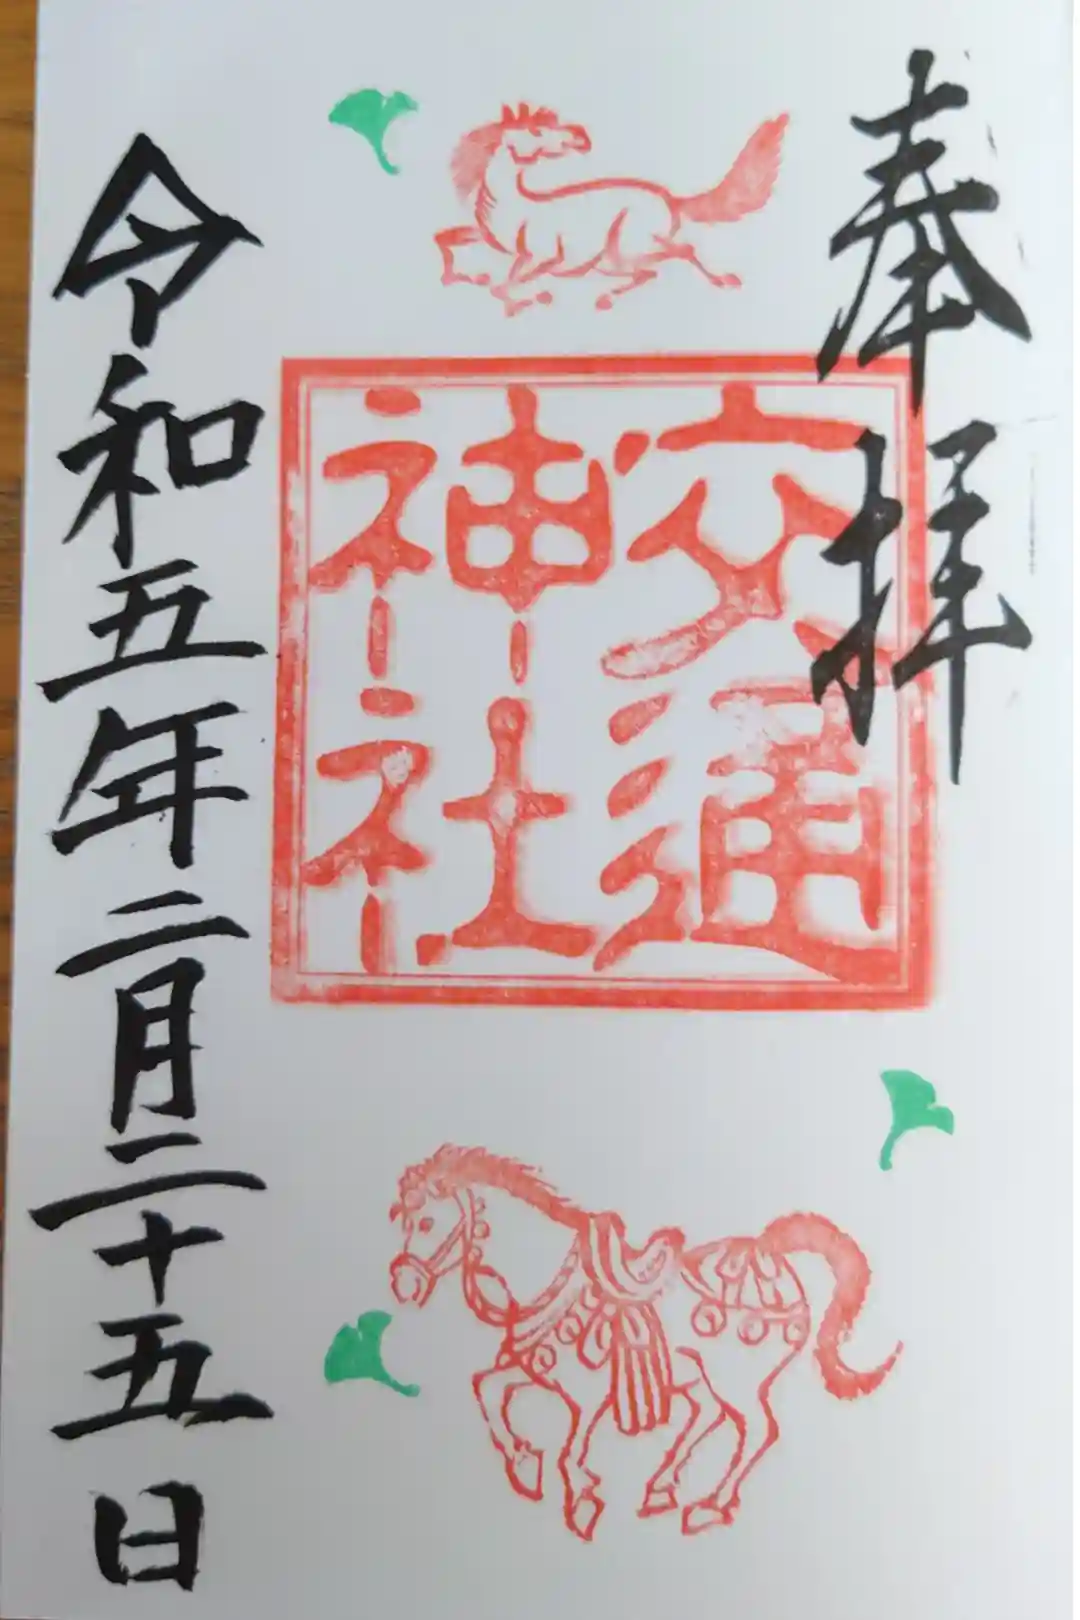 奉拝
交通
神社
令和五年二月二十五日